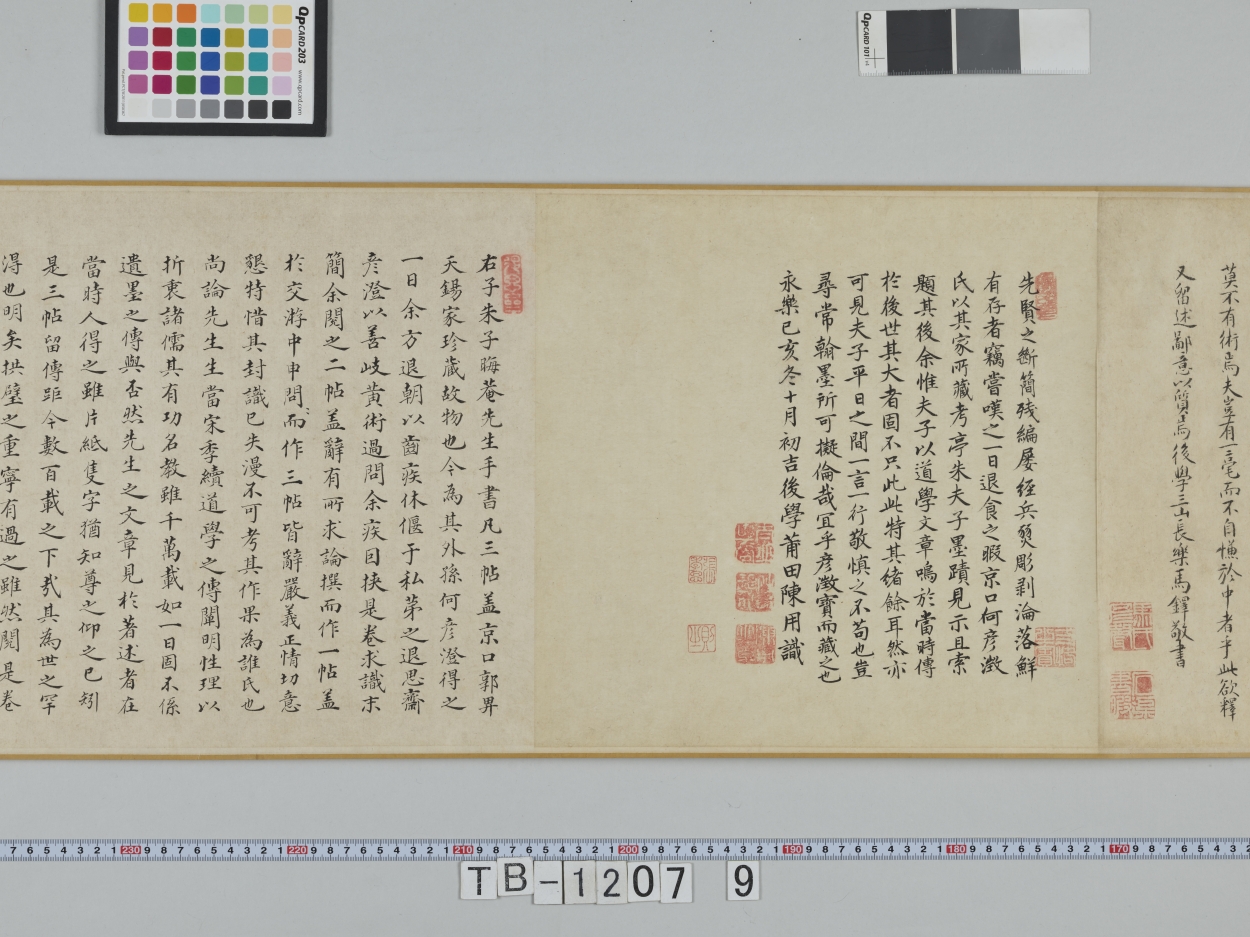 莫不有術焉夫豈有一毫而不自慊於中者乎此欲釋
又留述鄙意以質焉後學三山長樂馬鐸敬書
先賢之斷簡殘編屡經兵燹彫剥淪落鮮
有存者竊嘗嘆之一日退食之暇京口何彦澂
氏以其家所藏考亭朱夫子墨蹟見示且索
題其後余惟夫子以道學文章鳴於當時傳
於後世其大者固不只此此特其緒餘耳然亦
可見夫子平日之間一言一行敬慎之不苟也豈
尋常翰墨所可擬倫哉宜乎彦澂寶而藏之也
永樂己亥冬十月初吉後學莆田陳用識
右子朱子晦菴先生手書凡三帖盖京口郭畀
天錫家珍藏故物也今為其外孫何彦澄得之
一日余方退朝以齒疾休偃于私苐之退思齋
彦澄以善岐黄術過問余疾因挾是卷求識末
簡余閱之二帖盖辭有所求論撰而作一帖盖
於交游中申問而作三帖皆辭嚴義正情切意
懇特惜其封識已失漫不可考其作果為誰氏也
尚論先生生當宋季續道學之傳闡明性理以
折衷諸儒其有功名教雖千萬載如一日固不係
遺墨之傳與否然先生之文章見於著述者在
當時人得之雖片紙隻字猶知尊之仰之已矧
是三帖留傳距今數百載之下哉其為世之罕
得也明矣拱璧之重寧有過之雖然閱是卷
QPCARD 203
www.qpcard.com
QPCARD 101
TB-1207 9
7 6 5 4 3 2 1 230 9 8 7 6 5 4 3 2 1 220 9 8 7 6 5 4 3 2 1 210 9 8 7 6 5 4 3 2 1 200 9 8 7 6 5 4 3 2 1 190 9 8 7 6 5 4 3 2 1 180 9 8 7 6 5 4 3 2 1 170 9 8 7 6 5 4 3 2